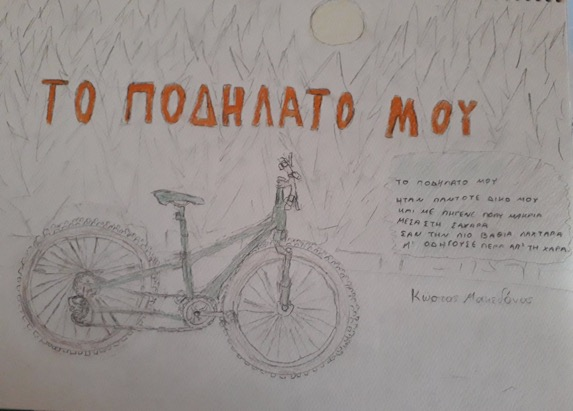 ΤΟ ΠΟΔΗΛΑΤΟ ΜΟΥ
ΤΟ ΠΟΔΗΛΑΤΟ ΜΟΥ
ΗΤΑΝ ΠΑΝΤΟΤΕ ΔΙΚΟ ΜΟΥ
ΚΑΙ ΜΕ ΠΗΓΕΝΕ ΠΟΛΥ ΜΑΚΡΙΑ
ΜΕΣΑ ΣΤΗ ΣΑΧΑΡΑ
ΣΑΝ ΤΗΝ ΠΙΟ ΒΑΘΙΑ ΛΑΧΤΑΡΑ
Μ' ΟΔΗΓΟΥΣΕ ΠΕΡΑ ΑΠ' ΤΗ ΧΑΡΑ
Κώστας Μακεδόνας